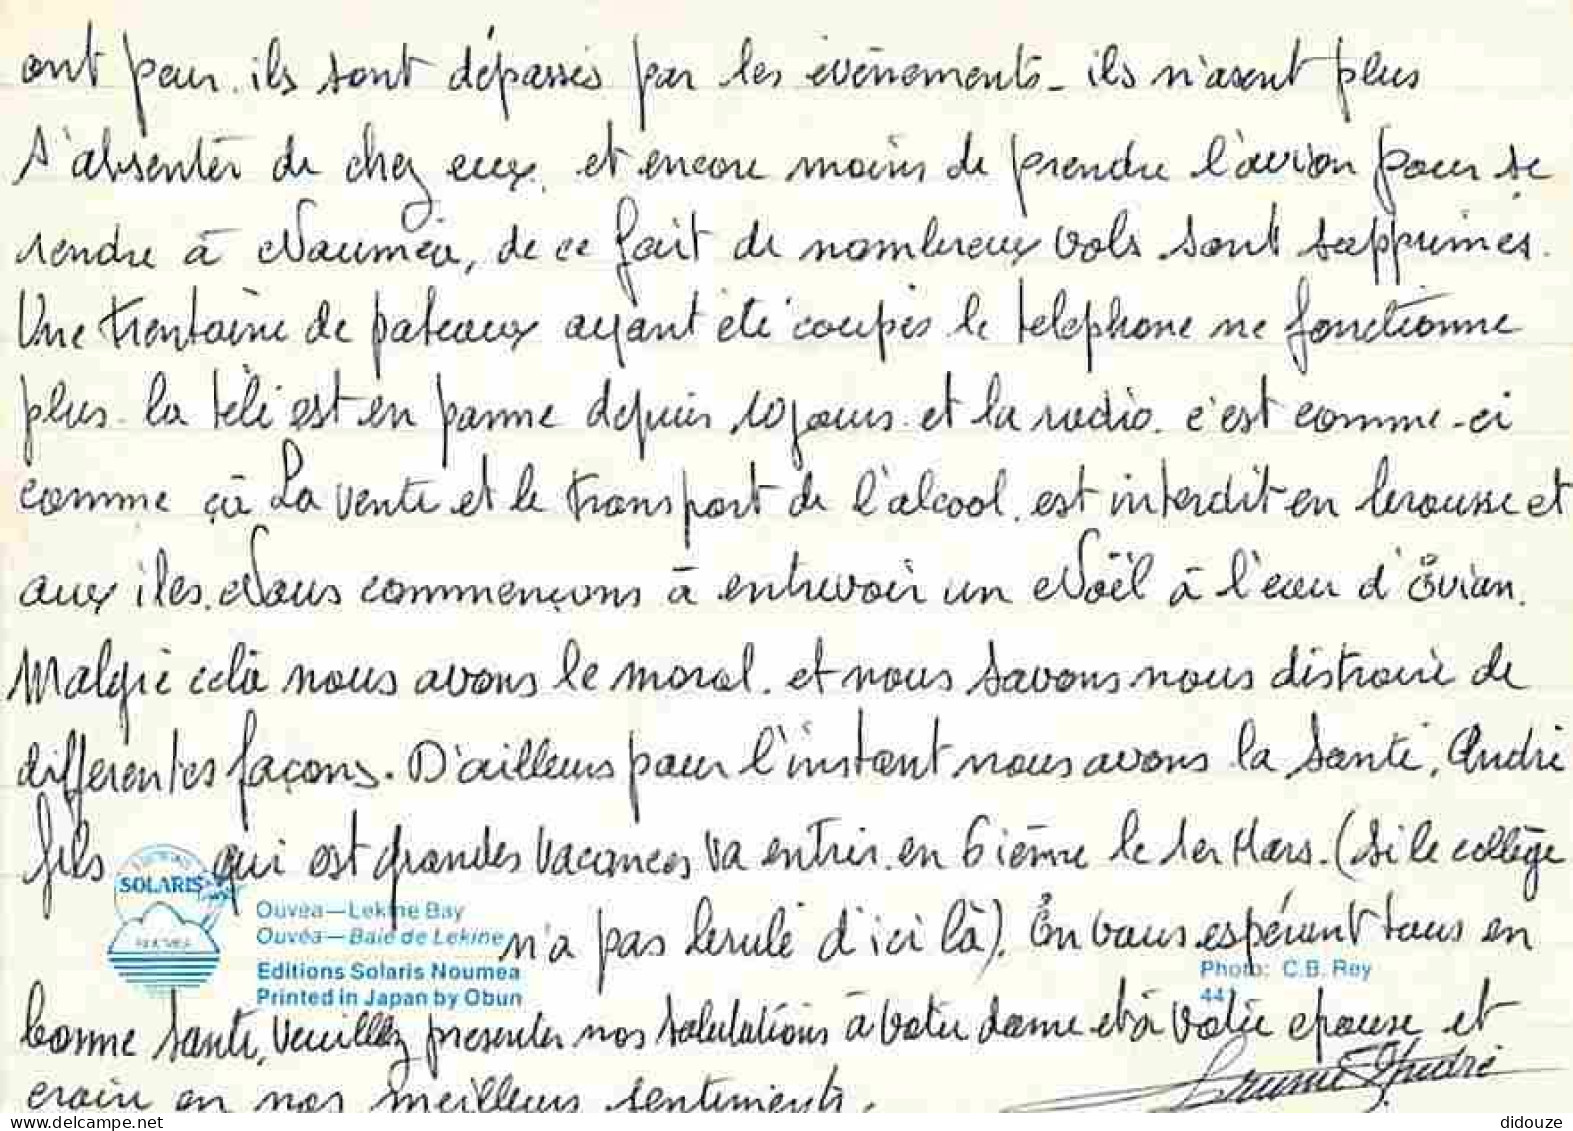 ont peur. ils sont dépassés par les évènements - ils n'osent plus
s'absenter de chez eux, et encore moins de prendre l'avion pour se
rendre à Nouméa, de ce fait de nombreux vols sont supprimés.
Une trentaine de poteaux ayant été coupés le téléphone ne fonctionne
plus. la télé est en panne depuis 10 jours et la radio. c'est comme-ci
comme çà La vente et le transport de l'alcool. est interdit en brousse et
aux iles. Nous commençons à entrevoir un Noël à l'eau d'Evian.
Malgré celà nous avons le moral. et nous savons nous distraire de
différentes façons. D'ailleurs pour l'instant nous avons la santé, André
fils qui est grandes vacances va entrer en 6 ième le 1er Mars. (si le collège
SOLARIS
NOUMEA
Ouvea—Lekine Bay
Ouvéa—Baie de Lekine
n'a pas brulé d'ici là). En vous espérant tous en
Editions Solaris Noumea
Printed in Japan by Obun
Photo: C.B. Rey
44
bonne santé, veuillez présenter nos salutations à votre dame et à votre epouse et
croire en nos meilleurs sentiments.
André
didouze